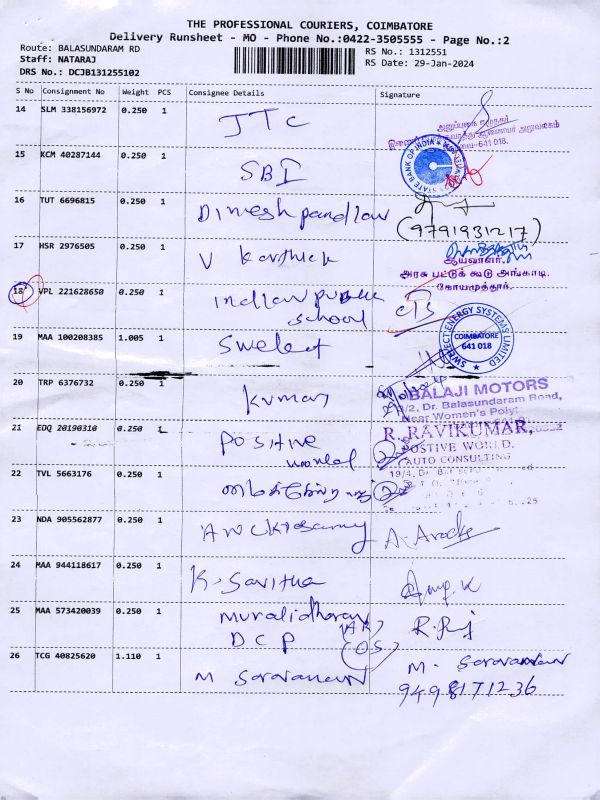 THE PROFESSIONAL COURIERS, COIMBATORE
Delivery Runsheet - MO - Phone No.:0422-3505555 - Page No.:2
Route: BALASUNDARAM RD
RS No.: 1312551
Staff: NATARAJ
RS Date: 29-Jan-2024
DRS No.: DCJB131255102
S No Consignment No Weight PCS Consignee Details Signature
14 SLM 338156972 0.250 1 JTC
641 018.
15 KCM 40287144 0.250 1 SBI
STATE BANK OF INDIA
16 TUT 6696815 0.250 1 Dinesh pandian
(9791931217)
17 HSR 2976505 0.250 1 V Karthick
ஆய்வாளர்,
அரசு பட்டுக் கூடு அங்காடி.
கோயமுத்தூர்.
18 VPL 221628650 0.250 1 Indian public
school
19 MAA 100208385 1.005 1 Swelect
SWELECT ENERGY SYSTEMS LIMITED
COIMBATORE
641 018
20 TRP 6376732 0.250 1 Kumar
BALAJI MOTORS
Dr. Balasundaram Road,
Near Women's Poly
21 EDQ 20190310 0.250 1 Positive
world
R. RAVIKUMAR,
POSTIVE WORLD.
AUTO CONSULTING
22 TVL 5663176 0.250 1
23 NDA 905562877 0.250 1
24 MAA 944118617 0.250 1 K. Savitha
25 MAA 573420039 0.250 1 Muralidharan
DCP
26 TCG 40825620 1.110 1 M Saravanan M. Saravanan
9498171236